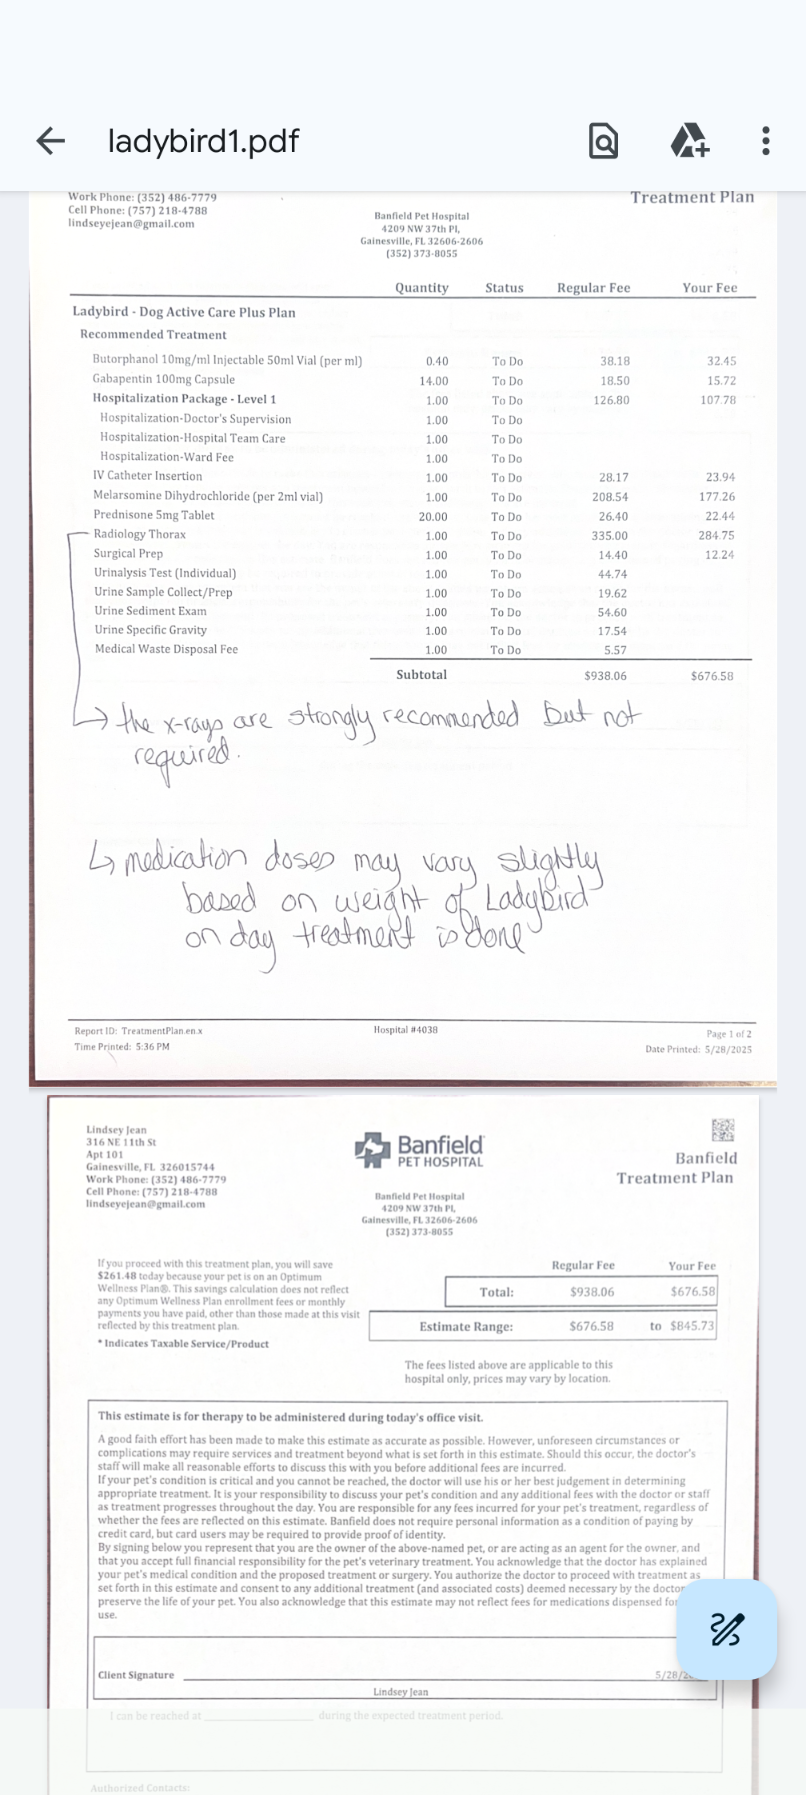 ladybird1.pdf
Work Phone: (352) 486-7779
Cell Phone: (757) 218-4788
lindseyejean@gmail.com
Treatment Plan
Banfield Pet Hospital
4209 NW 37th Pl,
Gainesville, FL 32606-2606
(352) 373-8055
Quantity Status Regular Fee Your Fee
Ladybird - Dog Active Care Plus Plan
Recommended Treatment
Butorphanol 10mg/ml Injectable 50ml Vial (per ml) 0.40 To Do 38.18 32.45
Gabapentin 100mg Capsule 14.00 To Do 18.50 15.72
Hospitalization Package - Level 1 1.00 To Do 126.80 107.78
Hospitalization-Doctor's Supervision 1.00 To Do
Hospitalization-Hospital Team Care 1.00 To Do
Hospitalization-Ward Fee 1.00 To Do
IV Catheter Insertion 1.00 To Do 28.17 23.94
Melarsomine Dihydrochloride (per 2ml vial) 1.00 To Do 208.54 177.26
Prednisone 5mg Tablet 20.00 To Do 26.40 22.44
Radiology Thorax 1.00 To Do 335.00 284.75
Surgical Prep 1.00 To Do 14.40 12.24
Urinalysis Test (Individual) 1.00 To Do 44.74
Urine Sample Collect/Prep 1.00 To Do 19.62
Urine Sediment Exam 1.00 To Do 54.60
Urine Specific Gravity 1.00 To Do 17.54
Medical Waste Disposal Fee 1.00 To Do 5.57
Subtotal $938.06 $676.58
the x-rays are strongly recommended but not
required.
medication doses may vary slightly
based on weight of Ladybird
on day treatment is done
Report ID: TreatmentPlan.en.x Hospital #4038 Page 1 of 2
Time Printed: 5:36 PM Date Printed: 5/28/2025
Lindsey Jean
316 NE 11th St
Apt 101
Gainesville, FL 326015744
Work Phone: (352) 486-7779
Cell Phone: (757) 218-4788
lindseyejean@gmail.com
Banfield
PET HOSPITAL
Banfield Pet Hospital
4209 NW 37th Pl,
Gainesville, FL 32606-2606
(352) 373-8055
Banfield
Treatment Plan
If you proceed with this treatment plan, you will save
$261.48 today because your pet is on an Optimum
Wellness Plan®. This savings calculation does not reflect
any Optimum Wellness Plan enrollment fees or monthly
payments you have paid, other than those made at this visit
reflected by this treatment plan.
* Indicates Taxable Service/Product
Regular Fee Your Fee
Total: $938.06 $676.58
Estimate Range: $676.58 to $845.73
The fees listed above are applicable to this
hospital only, prices may vary by location.
This estimate is for therapy to be administered during today's office visit.
A good faith effort has been made to make this estimate as accurate as possible. However, unforeseen circumstances or
complications may require services and treatment beyond what is set forth in this estimate. Should this occur, the doctor's
staff will make all reasonable efforts to discuss this with you before additional fees are incurred.
If your pet's condition is critical and you cannot be reached, the doctor will use his or her best judgement in determining
appropriate treatment. It is your responsibility to discuss your pet's condition and any additional fees with the doctor or staff
as treatment progresses throughout the day. You are responsible for any fees incurred for your pet's treatment, regardless of
whether the fees are reflected on this estimate. Banfield does not require personal information as a condition of paying by
credit card, but card users may be required to provide proof of identity.
By signing below you represent that you are the owner of the above-named pet, or are acting as an agent for the owner, and
that you accept full financial responsibility for the pet's veterinary treatment. You acknowledge that the doctor has explained
your pet's medical condition and the proposed treatment or surgery. You authorize the doctor to proceed with treatment as
set forth in this estimate and consent to any additional treatment (and associated costs) deemed necessary by the doctor
preserve the life of your pet. You also acknowledge that this estimate may not reflect fees for medications dispensed for
use.
Client Signature 5/28/2
Lindsey Jean
I can be reached at during the expected treatment period.
Authorized Contacts: